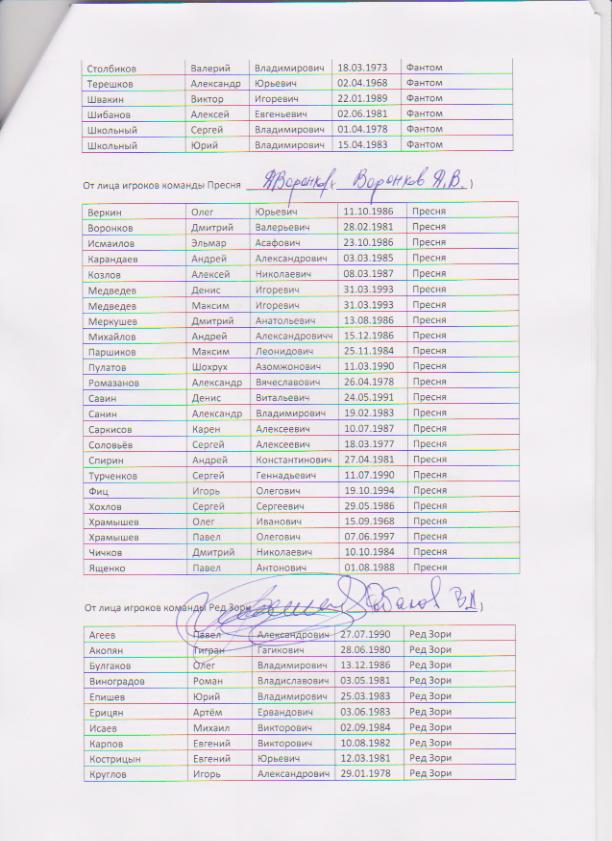 Столбиков Валерий Владимирович 18.03.1973 Фантом
Терешков Александр Юрьевич 02.04.1968 Фантом
Швакин Виктор Игоревич 22.01.1989 Фантом
Шибанов Алексей Евгеньевич 02.06.1981 Фантом
Школьный Сергей Владимирович 01.04.1978 Фантом
Школьный Юрий Владимирович 15.04.1983 Фантом
От лица игроков команды Пресня Воронков Д.В. )
Веркин Олег Юрьевич 11.10.1986 Пресня
Воронков Дмитрий Валерьевич 28.02.1981 Пресня
Исмаилов Эльмар Асафович 23.10.1986 Пресня
Карандаев Андрей Александрович 03.03.1985 Пресня
Козлов Алексей Николаевич 08.03.1987 Пресня
Медведев Денис Игоревич 31.03.1993 Пресня
Медведев Максим Игоревич 31.03.1993 Пресня
Меркушев Дмитрий Анатольевич 13.08.1986 Пресня
Михайлов Андрей Александровичч 15.12.1986 Пресня
Паршиков Максим Леонидович 25.11.1984 Пресня
Пулатов Шохрух Азомжонович 11.03.1990 Пресня
Ромазанов Александр Вячеславович 26.04.1978 Пресня
Савин Денис Витальевич 24.05.1991 Пресня
Санин Александр Владимирович 19.02.1983 Пресня
Саркисов Карен Алексеевич 10.07.1987 Пресня
Соловьёв Сергей Алексеевич 18.03.1977 Пресня
Спирин Андрей Константинович 27.04.1981 Пресня
Турченков Сергей Геннадьевич 11.07.1990 Пресня
Фиц Игорь Олегович 19.10.1994 Пресня
Хохлов Сергей Сергеевич 29.05.1986 Пресня
Храмышев Олег Иванович 15.09.1968 Пресня
Храмышев Павел Олегович 07.06.1997 Пресня
Чичков Дмитрий Николаевич 10.10.1984 Пресня
Ященко Павел Антонович 01.08.1988 Пресня
От лица игроков команды Ред Зори )
Агеев Павел Александрович 27.07.1990 Ред Зори
Акопян Тигран Гагикович 28.06.1980 Ред Зори
Булгаков Олег Владимирович 13.12.1986 Ред Зори
Виноградов Роман Владиславович 03.05.1981 Ред Зори
Епишев Юрий Владимирович 25.03.1983 Ред Зори
Ерицян Артём Ервандович 03.06.1983 Ред Зори
Исаев Михаил Викторович 02.09.1984 Ред Зори
Карпов Евгений Викторович 10.08.1982 Ред Зори
Кострицын Евгений Юрьевич 12.03.1981 Ред Зори
Круглов Игорь Александрович 29.01.1978 Ред Зори